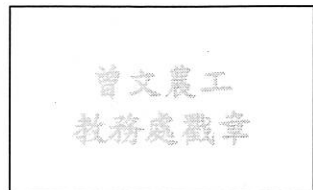 曾文農工
教務處戳章